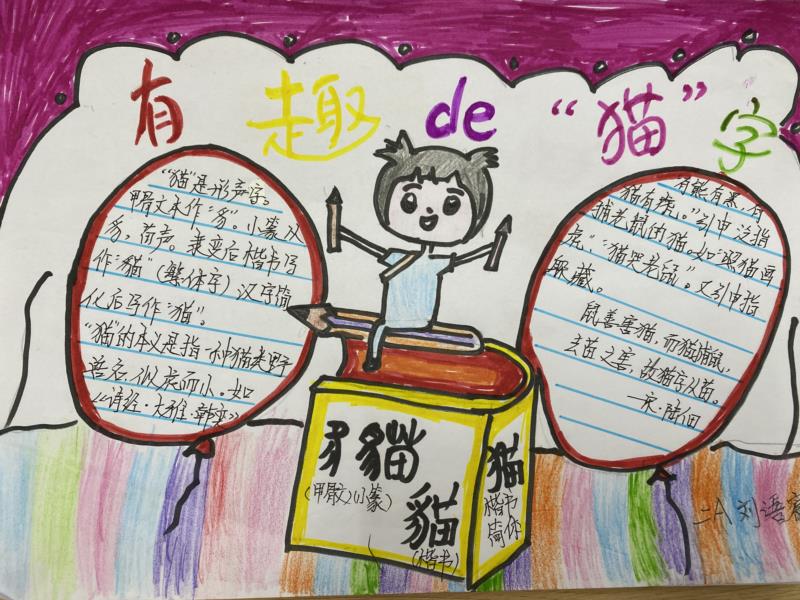 有趣de“猫”字
“猫”是形声字。
甲骨文未作“豸”。小篆从
豸，苗声。隶变后楷书写
作“貓”（繁体字）汉字简
化后写作“猫”。
“猫”的本义是指一种猫类野
兽名，似虎而小。如
《诗经·大雅·韩奕》
“有熊有罴，有
猫有虎。”引申泛指
捕老鼠的猫，如“照猫画
虎”“猫哭老鼠”。又引申指
躲藏。
鼠善害猫，而猫捕鼠，
去苗之害，故猫字从苗。
—宋·陆佃
豸 貓
(甲骨文)(小篆)
貓
(楷书)
猫
楷书
简体
二A 刘语